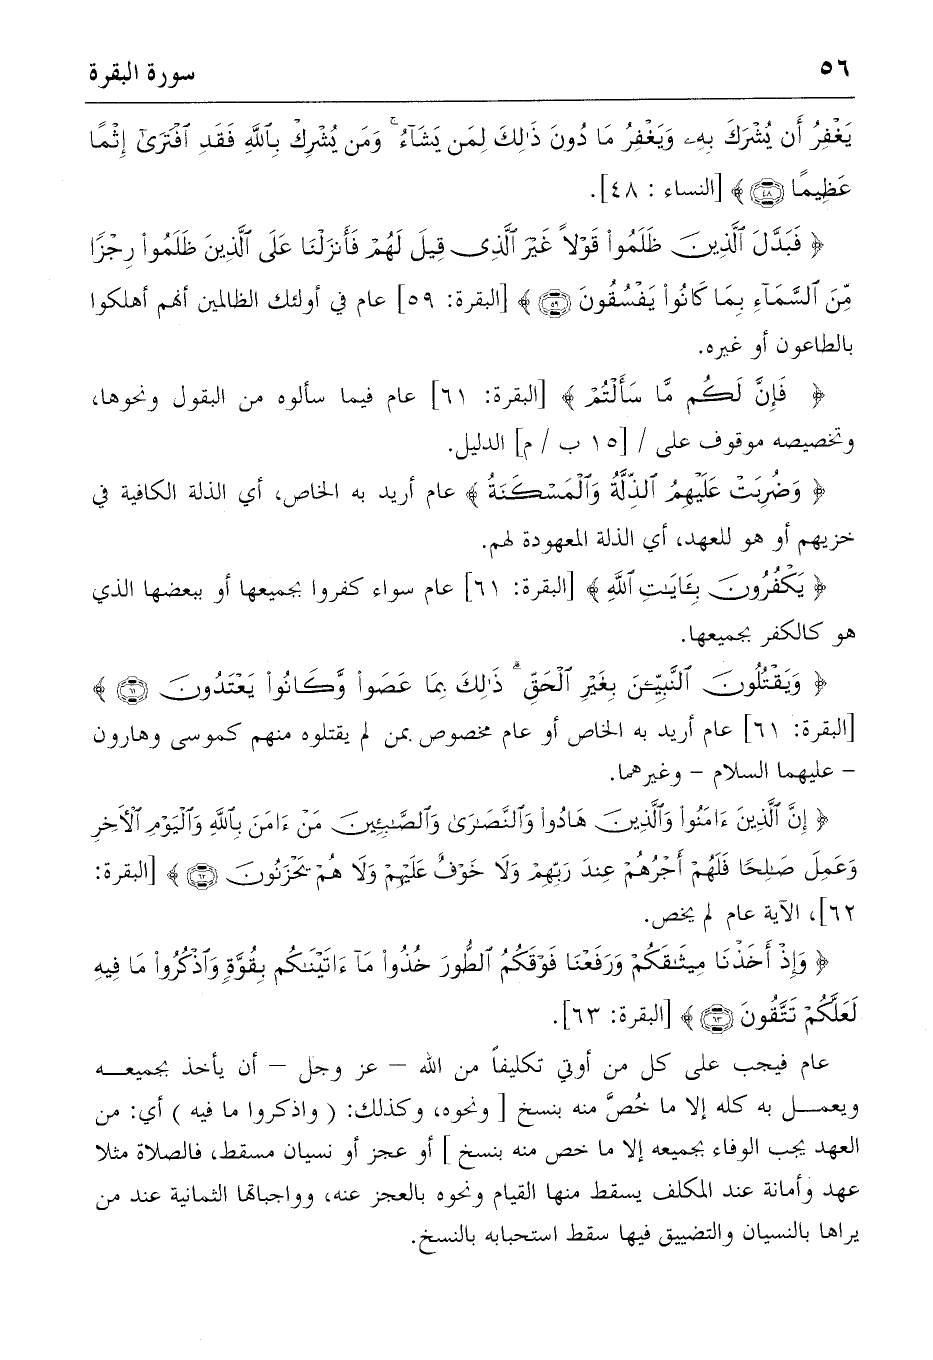 ٥٦ سورة البقرة
يَغْفِرُ أَن يُشْرَكَ بِهِۦ وَيَغْفِرُ مَا دُونَ ذَٰلِكَ لِمَن يَشَآءُ ۚ وَمَن يُشْرِكْ بِٱللَّهِ فَقَدِ ٱفْتَرَىٰٓ إِثْمًا
عَظِيمًا ﴿٤٨﴾ ﴾ [النساء : ٤٨].
﴿ فَبَدَّلَ ٱلَّذِينَ ظَلَمُوا۟ قَوْلاً غَيْرَ ٱلَّذِى قِيلَ لَهُمْ فَأَنزَلْنَا عَلَى ٱلَّذِينَ ظَلَمُوا۟ رِجْزًا
مِّنَ ٱلسَّمَآءِ بِمَا كَانُوا۟ يَفْسُقُونَ ﴿٥٩﴾ ﴾ [البقرة: ٥٩] عام في أولئك الظالمين أنهم أهلكوا
بالطاعون أو غيره.
﴿ فَإِنَّ لَكُم مَّا سَأَلْتُمْ ﴾ [البقرة: ٦١] عام فيما سألوه من البقول ونحوها،
وتخصيصه موقوف على / [١٥ ب / م] الدليل.
﴿ وَضُرِبَتْ عَلَيْهِمُ ٱلذِّلَّةُ وَٱلْمَسْكَنَةُ ﴾ عام أريد به الخاص، أي الذلة الكافية في
خزيهم أو هو للعهد، أي الذلة المعهودة لهم.
﴿ يَكْفُرُونَ بِـَٔايَـٰتِ ٱللَّهِ ﴾ [البقرة: ٦١] عام سواء كفروا بجميعها أو ببعضها الذي
هو كالكفر بجميعها.
﴿ وَيَقْتُلُونَ ٱلنَّبِيِّـۧنَ بِغَيْرِ ٱلْحَقِّ ۗ ذَٰلِكَ بِمَا عَصَوا۟ وَّكَانُوا۟ يَعْتَدُونَ ﴿٦١﴾ ﴾
[البقرة: ٦١] عام أريد به الخاص أو عام مخصوص بمن لم يقتلوه منهم كموسى وهارون
– عليهما السلام – وغيرهما.
﴿ إِنَّ ٱلَّذِينَ ءَامَنُوا۟ وَٱلَّذِينَ هَادُوا۟ وَٱلنَّصَـٰرَىٰ وَٱلصَّـٰبِـِٔينَ مَنْ ءَامَنَ بِٱللَّهِ وَٱلْيَوْمِ ٱلْـَٔاخِرِ
وَعَمِلَ صَـٰلِحًا فَلَهُمْ أَجْرُهُمْ عِندَ رَبِّهِمْ وَلَا خَوْفٌ عَلَيْهِمْ وَلَا هُمْ يَحْزَنُونَ ﴿٦٢﴾ ﴾ [البقرة:
٦٢]، الآية عام لم يخص.
﴿ وَإِذْ أَخَذْنَا مِيثَـٰقَكُمْ وَرَفَعْنَا فَوْقَكُمُ ٱلطُّورَ خُذُوا۟ مَآ ءَاتَيْنَـٰكُم بِقُوَّةٍ وَٱذْكُرُوا۟ مَا فِيهِ
لَعَلَّكُمْ تَتَّقُونَ ﴿٦٣﴾ ﴾ [البقرة: ٦٣].
عام فيجب على كل من أوتي تكليفاً من الله – عز وجل – أن يأخذ بجميعـــه
ويعمـــل به كله إلا ما خُصَّ منه بنسخ [ ونحوه، وكذلك: ( واذكروا ما فيه ) أي: من
العهد يجب الوفاء بجميعه إلا ما خص منه بنسخ ] أو عجز أو نسيان مسقط، فالصلاة مثلا
عهد وأمانة عند المكلف يسقط منها القيام ونحوه بالعجز عنه، وواجباتها الثمانية عند من
يراها بالنسيان والتضييق فيها سقط استحبابه بالنسخ.